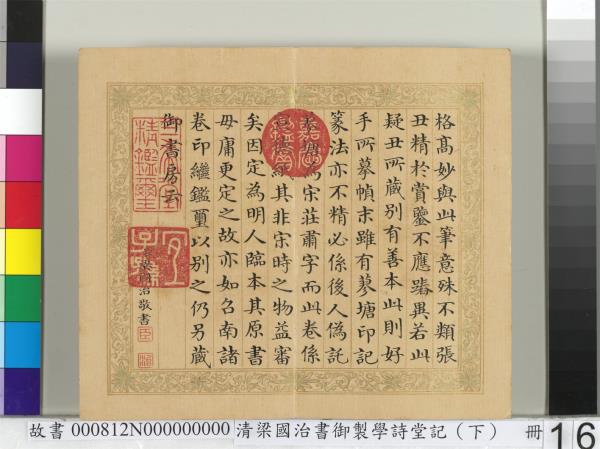 格高妙與此筆意殊不類張
丑精於賞鑒不應踳異若此
疑丑所藏別有善本此則好
手所摹幀末雖有蓼塘印記
篆法亦不精必係後人偽託
蓼塘為宋莊肅字而此卷係
其非宋時之物益審
矣因定為明人臨本其原書
毋庸更定之故亦如召南諸
卷印繼鑑璽以別之仍另藏
御書房云
臣梁國治敬書
故書 000812N000000000 清梁國治書御製學詩堂記（下） 冊 16